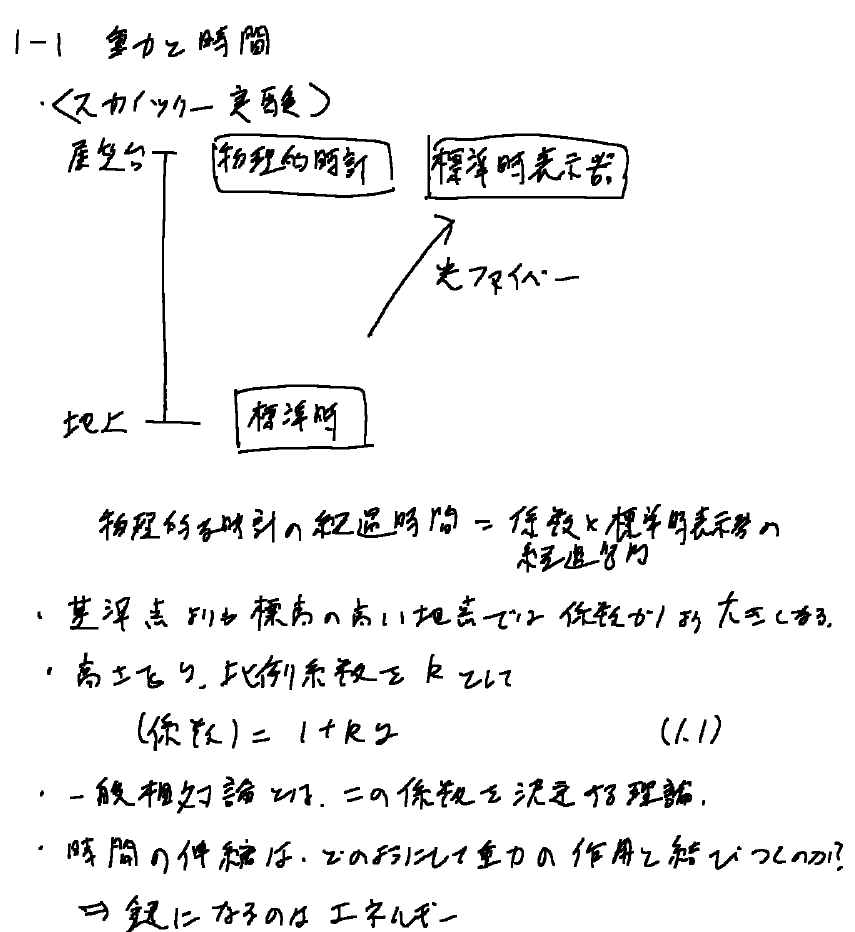 1-1 重力と時間
・<スカイツリー実験>
展望台
物理的時計
標準時表示器
光ファイバー
地上
標準時
物理的な時計の経過時間 = 係数×標準時表示器の
経過時間
・基準点よりも標高の高い地点では係数が1より大きくなる.
・高さをy, 比例係数をkとして
(係数) = 1+ky (1.1)
・一般相対論とは、この係数を決定する理論.
・時間の伸縮は、どのようにして重力の作用と結びつくのか?
⇒ 鍵になるのはエネルギー